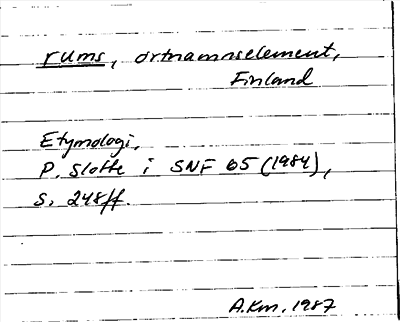 rums, ortnamnselement,
Finland
Etymologi,
P. Slotte i SNF 65 (1984),
s. 248ff.
A.Km. 1987